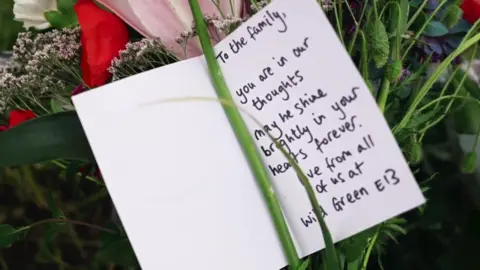 To the family,
you are in our
thoughts
may he shine
brightly in your
hearts forever.
from all
of us at
Green E13